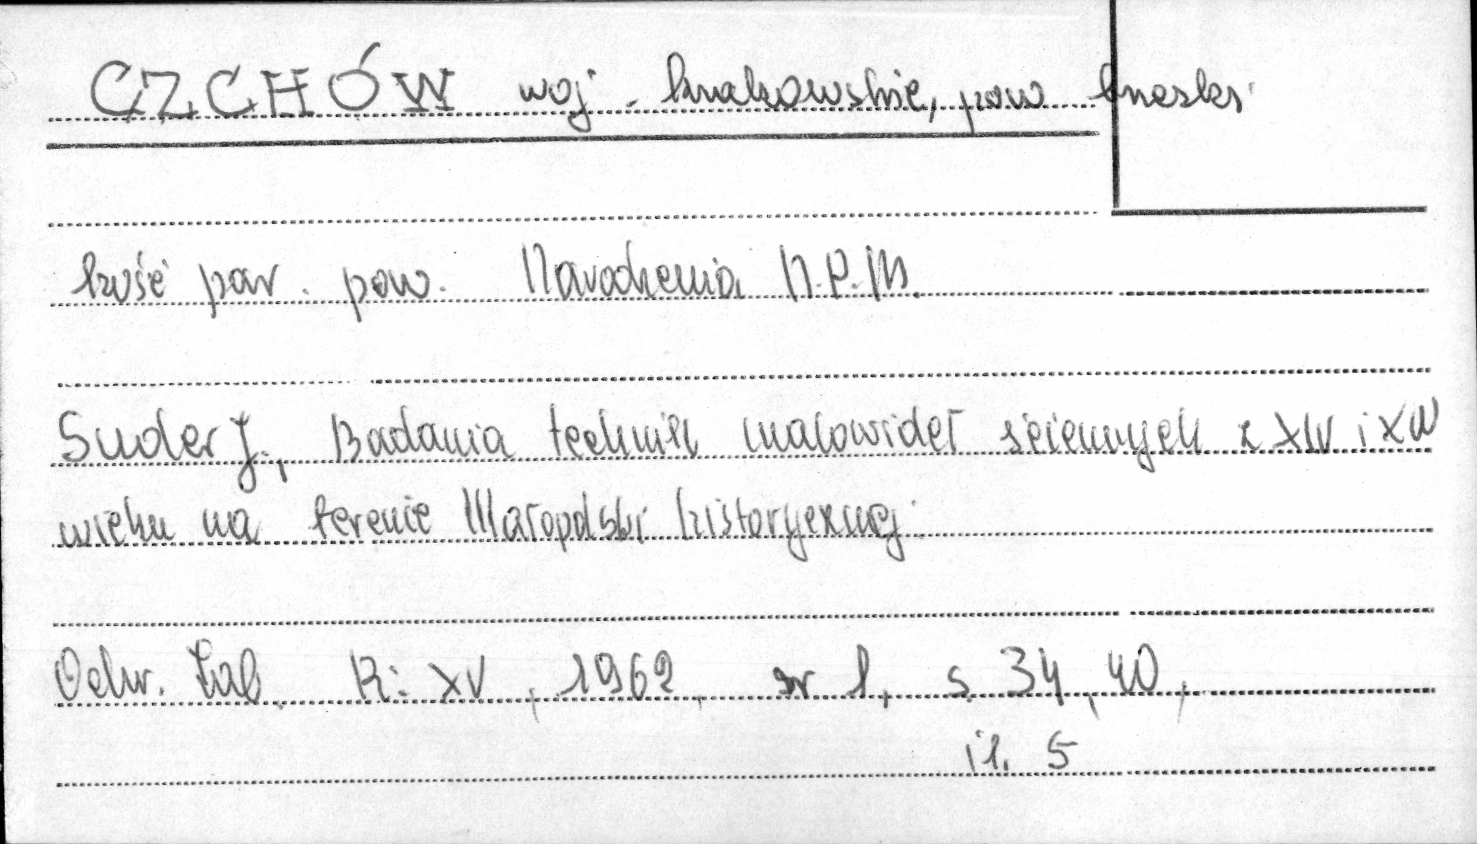 CZCHÓW woj. krakowskie, pow brzeski
kość par. pow. Narodzenia N.P.M.
Suder J., Badania technik malowideł ściennych z XIV i XV
wieku na terenie Małopolski historycznej.
Ochr. Zab. R. XV, 1962, nr 1, s. 34, 40,
il. 5